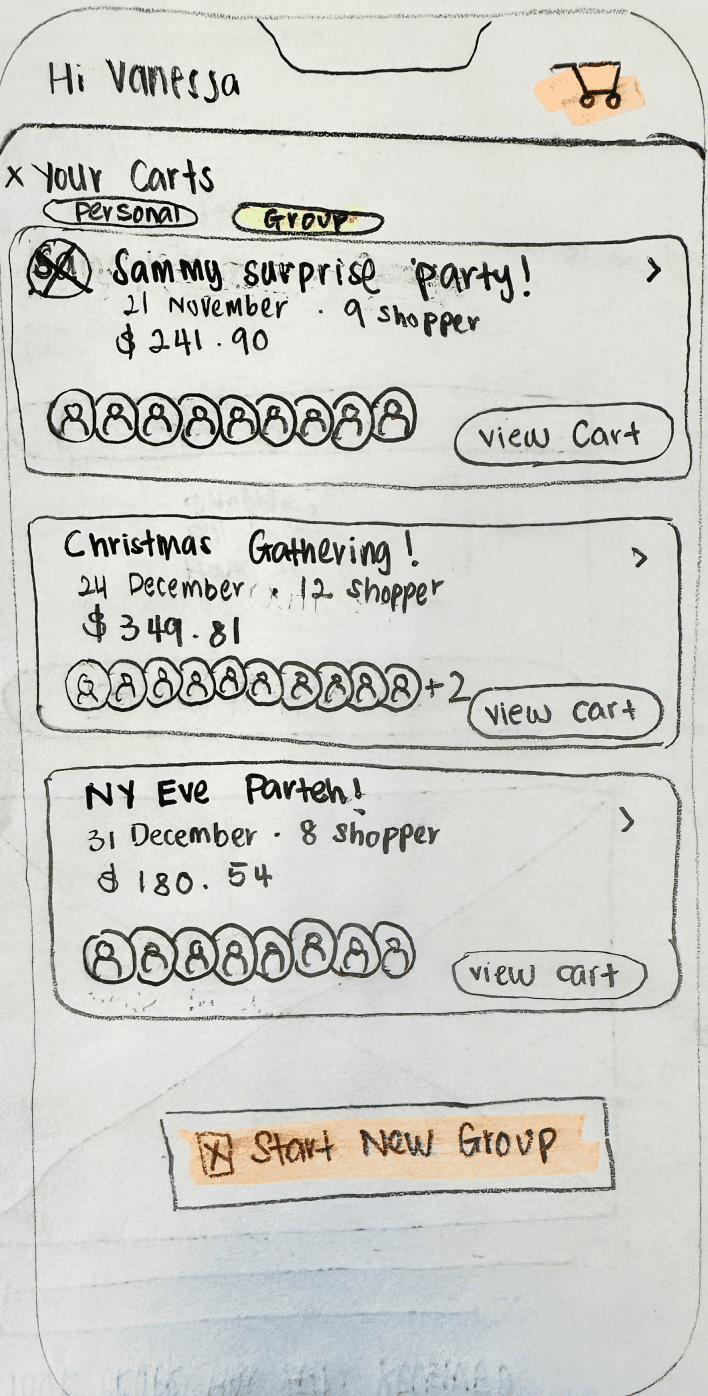 Hi Vanessa
x Your Carts
Personal Group
Sammy surprise party! >
21 November · 9 shopper
$ 241.90
view Cart
Christmas Gathering! >
24 December · 12 shopper
$ 349.81
+2
view cart
NY Eve Parteh! >
31 December · 8 shopper
$ 180.54
view cart
x Start New Group